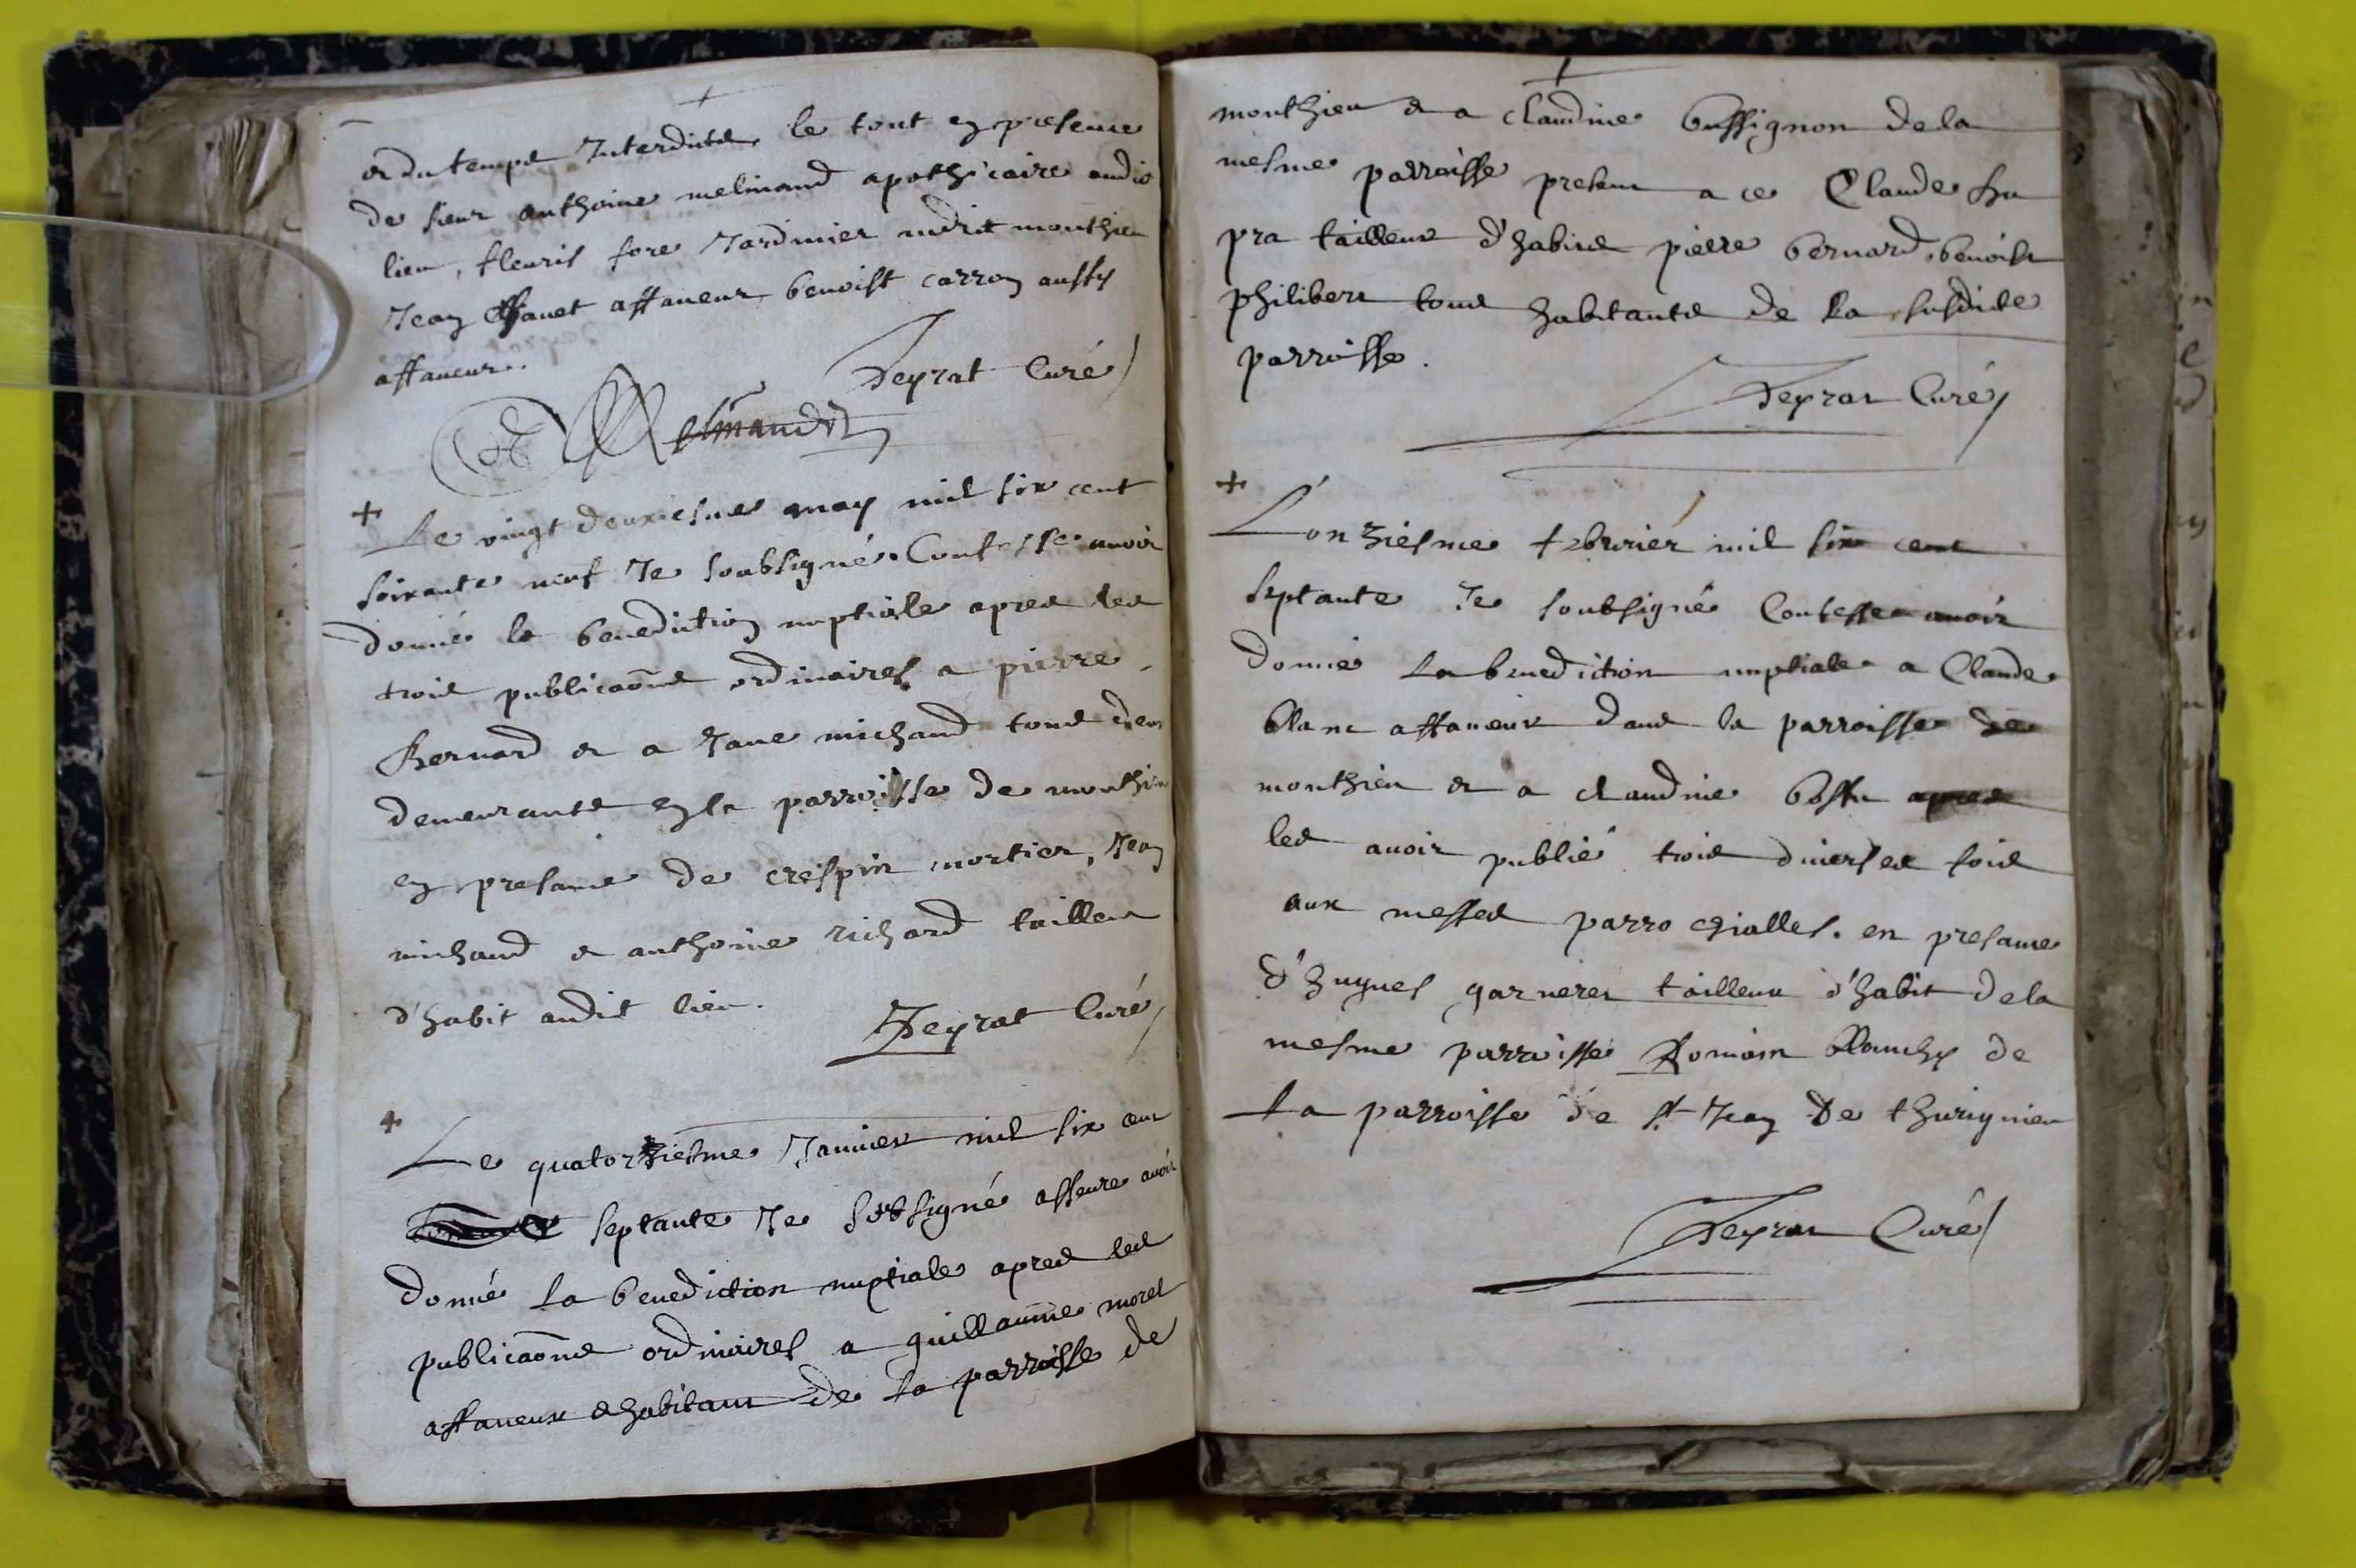 & du temps Interdits, le tout en presence
de sieur anthoine melinand apothicaire audit
lieu, fleuris fore Jardinier audit monthieu
Jean Chanet affaneur, benoist carron aussy
affaneur.
Peyrat Curé
Melinand
+ Le vingt deuxiesme may mil six cent
soixante neuf Je soubsigné Confesse avoir
donné la benediction nuptiale apres les
trois publicaõns ordinaires a pierre
Bernard & a Jane michaud tous deux
demeurants en la parroisse de monthieu
en presance de crespin mortier, Jean
michaud & anthoine richard tailleur
d'habit audit lieu.
Peyrat Curé
+
Le quatorziesme Januier mil six cent
septante Je sobsigné asseure avoir
donné la benediction nuptiale apres les
publicaõns ordinaires a guillaume morel
affaneur & habitant de la parroisse de
monthieu & a claudine bussignon de la
mesme parroisse present a ce Claude du
pra tailleur d'habits pierre bernard, benoist
philibert tous habitants de la susdite
parroisse.
Peyrat Curé
+
L'onziesme febvrier mil six cent
septante Je soubsigné Confesse avoir
donné la benediction nuptiale a Claude
blanc affaneur dans la parroisse de
monthieu & a claudine bossu apres
les avoir publié trois diverses fois
aux messes parrochialles. en presance
d'hugues garnerer tailleur d'habit de la
mesme parroisse Romain blanchy de
la parroisse de st Jean de thurignieu
Peyrat Curé